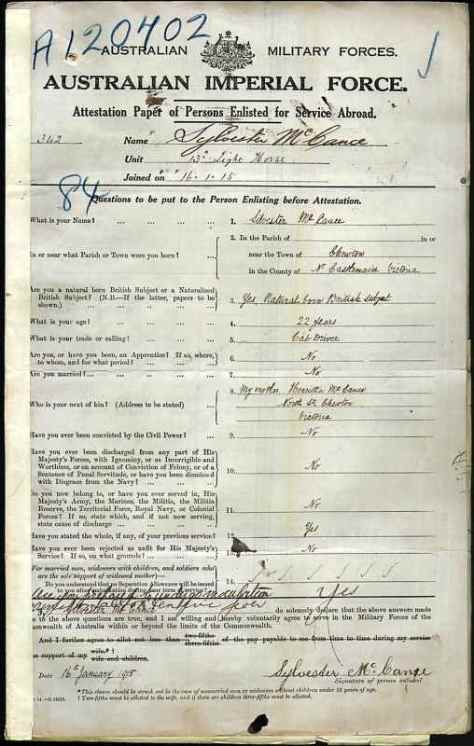 A120402
AUSTRALIAN MILITARY FORCES.
AUSTRALIAN IMPERIAL FORCE.
Attestation Paper of Persons Enlisted for Service Abroad.
342 Name Sylvester McCance
Unit 13th Light Horse
Joined on 16-1-15
84 Questions to be put to the Person Enlisting before Attestation.
What is your Name? ... 1. Sylvester McCance
2. In the Parish of in or
In or near what Parish or Town were you born? ... near the Town of Chewton
in the County of Nr Castlemaine Victoria
Are you a natural born British Subject or a Naturalized
British Subject? (N.B.—If the latter, papers to be 3. Yes, Natural born British subject
shown.)
What is your age? ... 4. 22 years
What is your trade or calling? ... 5. Cab Driver
Are you, or have you been, an Apprentice? If so, where, 6. No
to whom, and for what period?
Are you married? ... 7. No
8. My mother McCance
Who is your next of kin? (Address to be stated) ... North St Chewton
Victoria
Have you ever been convicted by the Civil Power? ... 9. No
Have you ever been discharged from any part of His
Majesty's Forces, with Ignominy, or as Incorrigible and
Worthless, or on account of Conviction of Felony, or of a 10. No
Sentence of Penal Servitude, or have you been dismissed
with Disgrace from the Navy?
Do you now belong to, or have you ever served in, His
Majesty's Army, the Marines, the Militia, the Militia
Reserve, the Territorial Force, Royal Navy, or Colonial 11. No
Forces? If so, state which, and if not now serving,
state cause of discharge
Have you stated the whole, if any, of your previous service? 12. Yes
Have you ever been rejected as unfit for His Majesty's 13. No
Service? If so, on what grounds?
For married men, widowers with children, and soldiers who
are the sole support of widowed mother—
Do you understand that no Separation Allowance will be issued
Are you prepared to undergo inoculation Yes
do solemnly declare that the above answers made
to the above questions are true, and I am willing and hereby voluntarily agree to serve in the Military Forces of the
Commonwealth of Australia within or beyond the limits of the Commonwealth.
And I further agree to allot not less than two-fifths three-fifths of the pay payable to me from time to time during my service
in support of my wife wife and children.
Date 16 January 1915 Sylvester McCance
Signature of person enlisted
*This clause should be struck out in the case of unmarried men or widowers without children under 18 years of age.
†Two-fifths must be allotted to the wife, and if there are children three-fifths must be allotted.